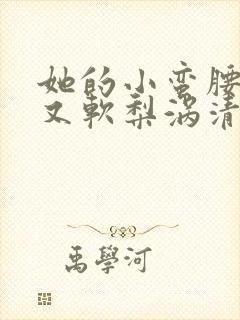 她的小蛮腰
又軟梨涡清
禹學河